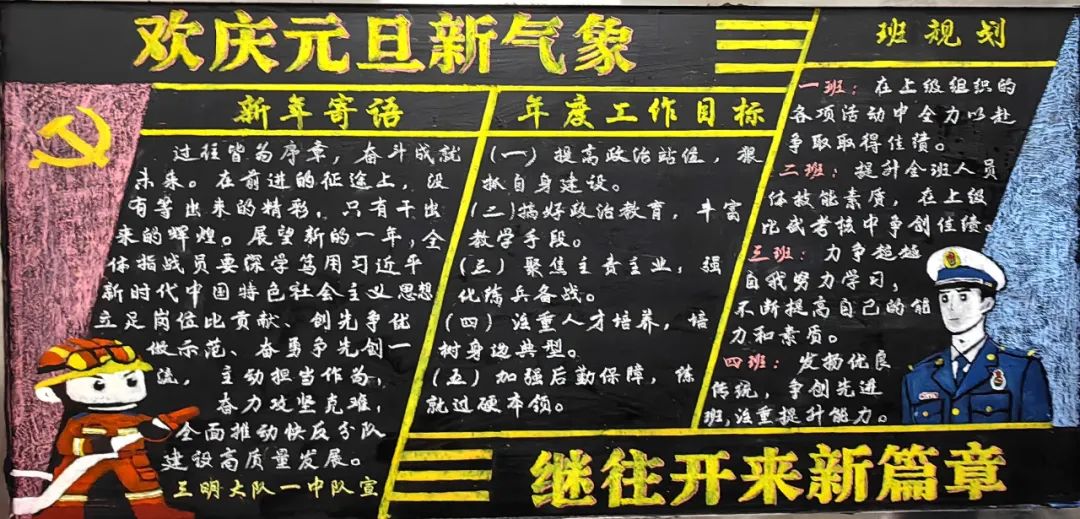 欢庆元旦新气象
新年寄语
过往皆为序章，奋斗成就
未来。在前进的征途上，没
有等出来的精彩，只有干出
来的辉煌。展望新的一年，全
体指战员要深学笃用习近平
新时代中国特色社会主义思想
立足岗位比贡献、创先争优
做示范、奋勇争先创一
流，主动担当作为，
奋力攻坚克难，
全面推动快反分队
建设高质量发展。
三明大队一中队宣
年度工作目标
(一）提高政治站位，狠
抓自身建设。
(二)搞好政治教育，丰富
教学手段。
(三）聚焦主责主业，强
化练兵备战。
(四）注重人才培养，培
树身边典型。
(五）加强后勤保障，练
就过硬本领。
班规划
一班：在上级组织的
各项活动中全力以赴
争取取得佳绩。
二班：提升全班人员
体技能素质，在上级
比武考核中争创佳绩。
三班：力争超越
自我努力学习，
不断提高自己的能
力和素质。
四班：发扬优良
传统，争创先进
班,注重提升能力。
继往开来新篇章